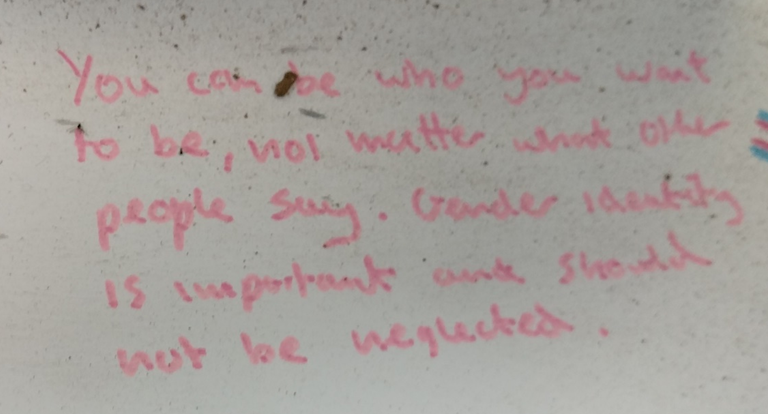 You can be who you want
to be, not matter what other
people say. Gender identity
is important and should
not be neglected.